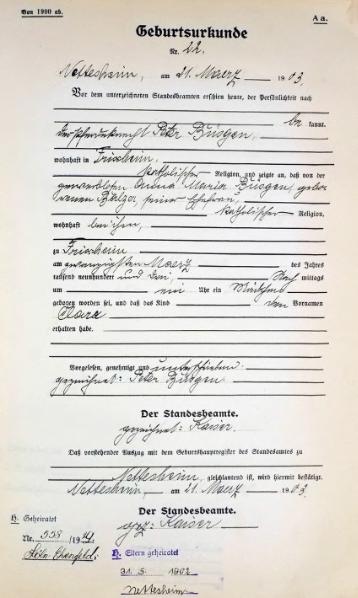 Von 1900 ab.
A a.
Geburtsurkunde
Nr. 22.
Nettesheim, am 21. Maerz 1903.
Vor dem unterzeichneten Standesbeamten erschien heute, der Persönlichkeit nach
be kannt,
der Pferdeknecht Peter Büsgen,
wohnhaft in Frixheim,
katholischer Religion, und zeigte an, daß von der
gewerblosen Anna Maria Büsgen, gebo-
renen Balzer, seiner Ehefrau,
katholischer Religion,
wohnhaft bei ihm,
zu Frixheim
am Maerz des Jahres
tausend neunhundert und drei, Nach mittags
um ein Uhr ein Mädchen
geboren worden sei, und daß das Kind den Vornamen
Clara
erhalten habe.
Vorgelesen, genehmigt und unterschrieben
gezeichnet: Peter Büsgen
Der Standesbeamte.
gezeichnet: Kaiser.
Daß vorstehender Auszug mit dem Geburtshauptregister des Standesamtes zu
Nettesheim, gleichlautend ist, wird hiermit bestätigt.
Nettesheim, am 21. Maerz 1903.
Der Standesbeamte.
gez: Kaiser
H. Geheiratet
Nr. 558/19
Köln Ehrenfeld.
H. Eltern geheiratet
31. 5. 1902
Nettesheim